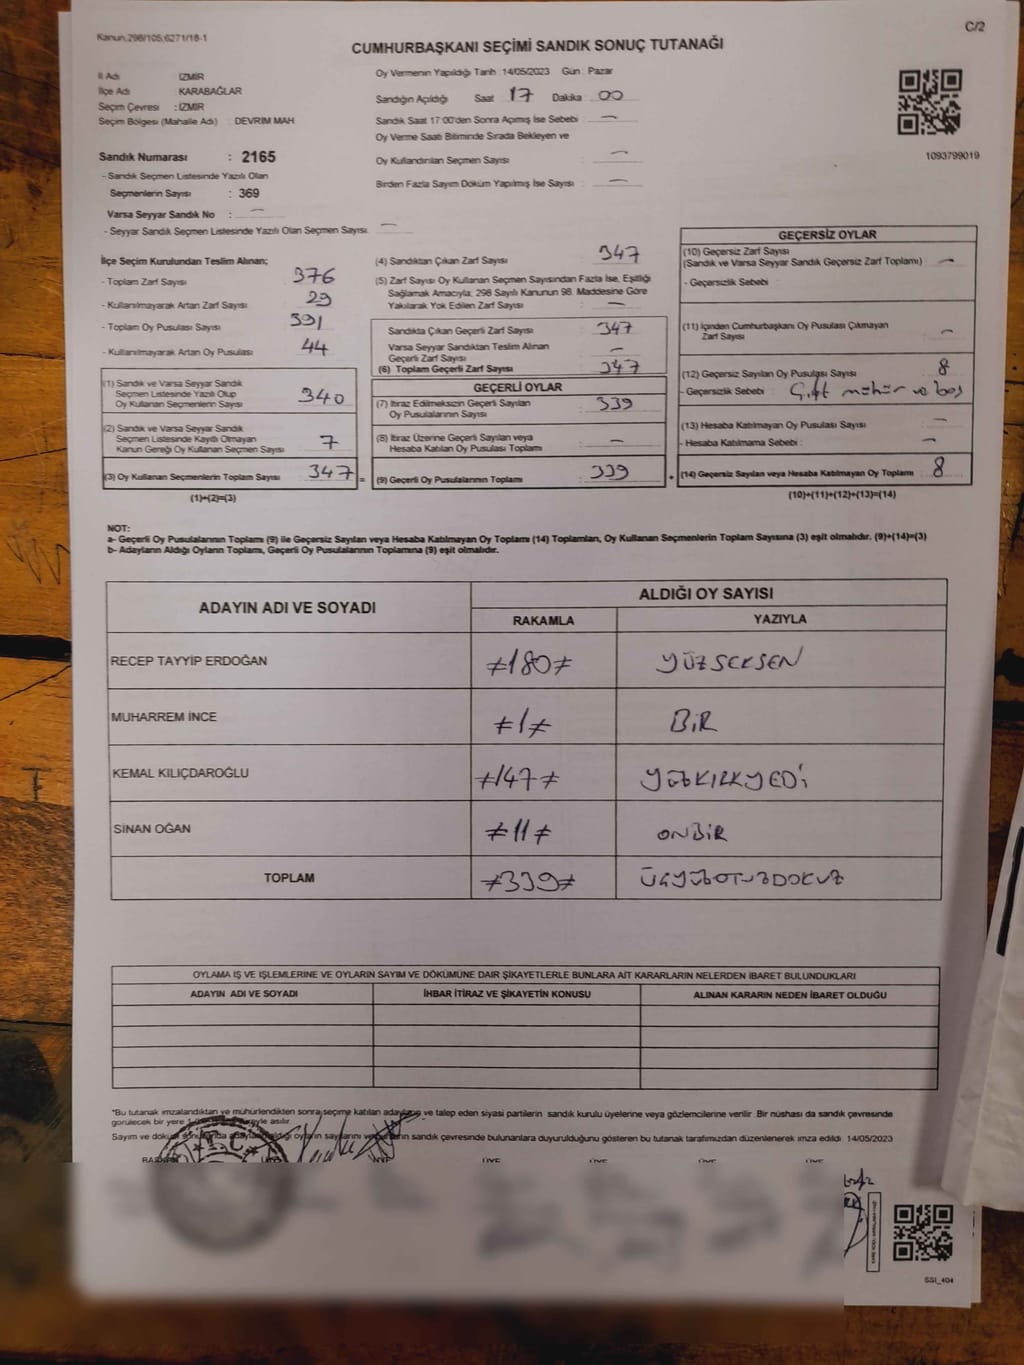 Kanun,298/105,6271/18-1
C/2
CUMHURBAŞKANI SEÇİMİ SANDIK SONUÇ TUTANAĞI
İl Adı İZMİR
İlçe Adı KARABAĞLAR
Seçim Çevresi : İZMİR
Seçim Bölgesi (Mahalle Adı) : DEVRİM MAH
Sandık Numarası : 2165
- Sandık Seçmen Listesinde Yazılı Olan
Seçmenlerin Sayısı : 369
Varsa Seyyar Sandık No : —
- Seyyar Sandık Seçmen Listesinde Yazılı Olan Seçmen Sayısı: —
Oy Vermenin Yapıldığı Tarih :14/05/2023 Gün : Pazar
Sandığın Açıldığı Saat 17 Dakika 00
Sandık Saat 17:00'den Sonra Açımış İse Sebebi : —
Oy Verme Saati Bitiminde Sırada Bekleyen ve
Oy Kullandırılan Seçmen Sayısı : —
Birden Fazla Sayım Döküm Yapılmış İse Sayısı : —
1093799019
İlçe Seçim Kurulundan Teslim Alınan;
- Toplam Zarf Sayısı : 376
- Kullanılmayarak Artan Zarf Sayısı : 29
- Toplam Oy Pusulası Sayısı : 391
- Kullanılmayarak Artan Oy Pusulası : 44
(1) Sandık ve Varsa Seyyar Sandık
Seçmen Listesinde Yazılı Olup
Oy Kullanan Seçmenlerin Sayısı : 340
(2) Sandık ve Varsa Seyyar Sandık
Seçmen Listesinde Kayıtlı Olmayan
Kanun Gereği Oy Kullanan Seçmen Sayısı : 7
(3) Oy Kullanan Seçmenlerin Toplam Sayısı : 347 =
(1)+(2)=(3)
(4) Sandıktan Çıkan Zarf Sayısı : 347
(5) Zarf Sayısı Oy Kullanan Seçmen Sayısından Fazla İse, Eşitliği
Sağlamak Amacıyla; 298 Sayılı Kanunun 98. Maddesine Göre
Yakılarak Yok Edilen Zarf Sayısı : —
Sandıkta Çıkan Geçerli Zarf Sayısı : 347
Varsa Seyyar Sandıktan Teslim Alınan
Geçerli Zarf Sayısı : —
(6) Toplam Geçerli Zarf Sayısı : 347
GEÇERLİ OYLAR
(7) İtiraz Edilmeksizin Geçerli Sayılan
Oy Pusulalarının Sayısı : 339
(8) İtiraz Üzerine Geçerli Sayılan veya
Hesaba Katılan Oy Pusulası Toplamı : —
(9) Geçerli Oy Pusulalarının Toplamı : 339 +
GEÇERSİZ OYLAR
(10) Geçersiz Zarf Sayısı
(Sandık ve Varsa Seyyar Sandık Geçersiz Zarf Toplamı) : —
- Geçersizlik Sebebi :
(11) İçinden Cumhurbaşkanı Oy Pusulası Çıkmayan
Zarf Sayısı : —
(12) Geçersiz Sayılan Oy Pusulası Sayısı : 8
- Geçersizlik Sebebi : Çift mühür ve boş
(13) Hesaba Katılmayan Oy Pusulası Sayısı : —
- Hesaba Katılmama Sebebi : —
(14) Geçersiz Sayılan veya Hesaba Katılmayan Oy Toplamı : 8
(10)+(11)+(12)+(13)=(14)
NOT:
a- Geçerli Oy Pusulalarının Toplamı (9) ile Geçersiz Sayılan veya Hesaba Katılmayan Oy Toplamı (14) Toplamları, Oy Kullanan Seçmenlerin Toplam Sayısına (3) eşit olmalıdır. (9)+(14)=(3)
b- Adayların Aldığı Oyların Toplamı, Geçerli Oy Pusulalarının Toplamına (9) eşit olmalıdır.
ADAYIN ADI VE SOYADI ALDIĞI OY SAYISI
RAKAMLA YAZIYLA
RECEP TAYYİP ERDOĞAN ≠180≠ YÜZSEKSEN
MUHARREM İNCE ≠1≠ BİR
KEMAL KILIÇDAROĞLU ≠147≠ YÜZKIRKYEDİ
SİNAN OĞAN ≠11≠ ONBİR
TOPLAM ≠339≠ ÜÇYÜZOTUZDOKUZ
OYLAMA İŞ VE İŞLEMLERİNE VE OYLARIN SAYIM VE DÖKÜMÜNE DAİR ŞİKAYETLERLE BUNLARA AİT KARARLARIN NELERDEN İBARET BULUNDUKLARI
ADAYIN ADI VE SOYADI İHBAR İTİRAZ VE ŞİKAYETİN KONUSU ALINAN KARARIN NEDEN İBARET OLDUĞU
*Bu tutanak imzalandıktan ve mühürlendikten sonra seçime katılan adaylara ve talep eden siyasi partilerin sandık kurulu üyelerine veya gözlemcilerine verilir. Bir nüshası da sandık çevresinde
görülecek bir yere asılır.
Sayım ve döküm sonucunda adayların aldığı oyların sayılarını ve sandık çevresinde bulunanlara duyurulduğunu gösteren bu tutanak tarafımızdan düzenlenerek imza edildi. 14/05/2023
T.C.
ÜYE ÜYE ÜYE ÜYE
SSİ_404